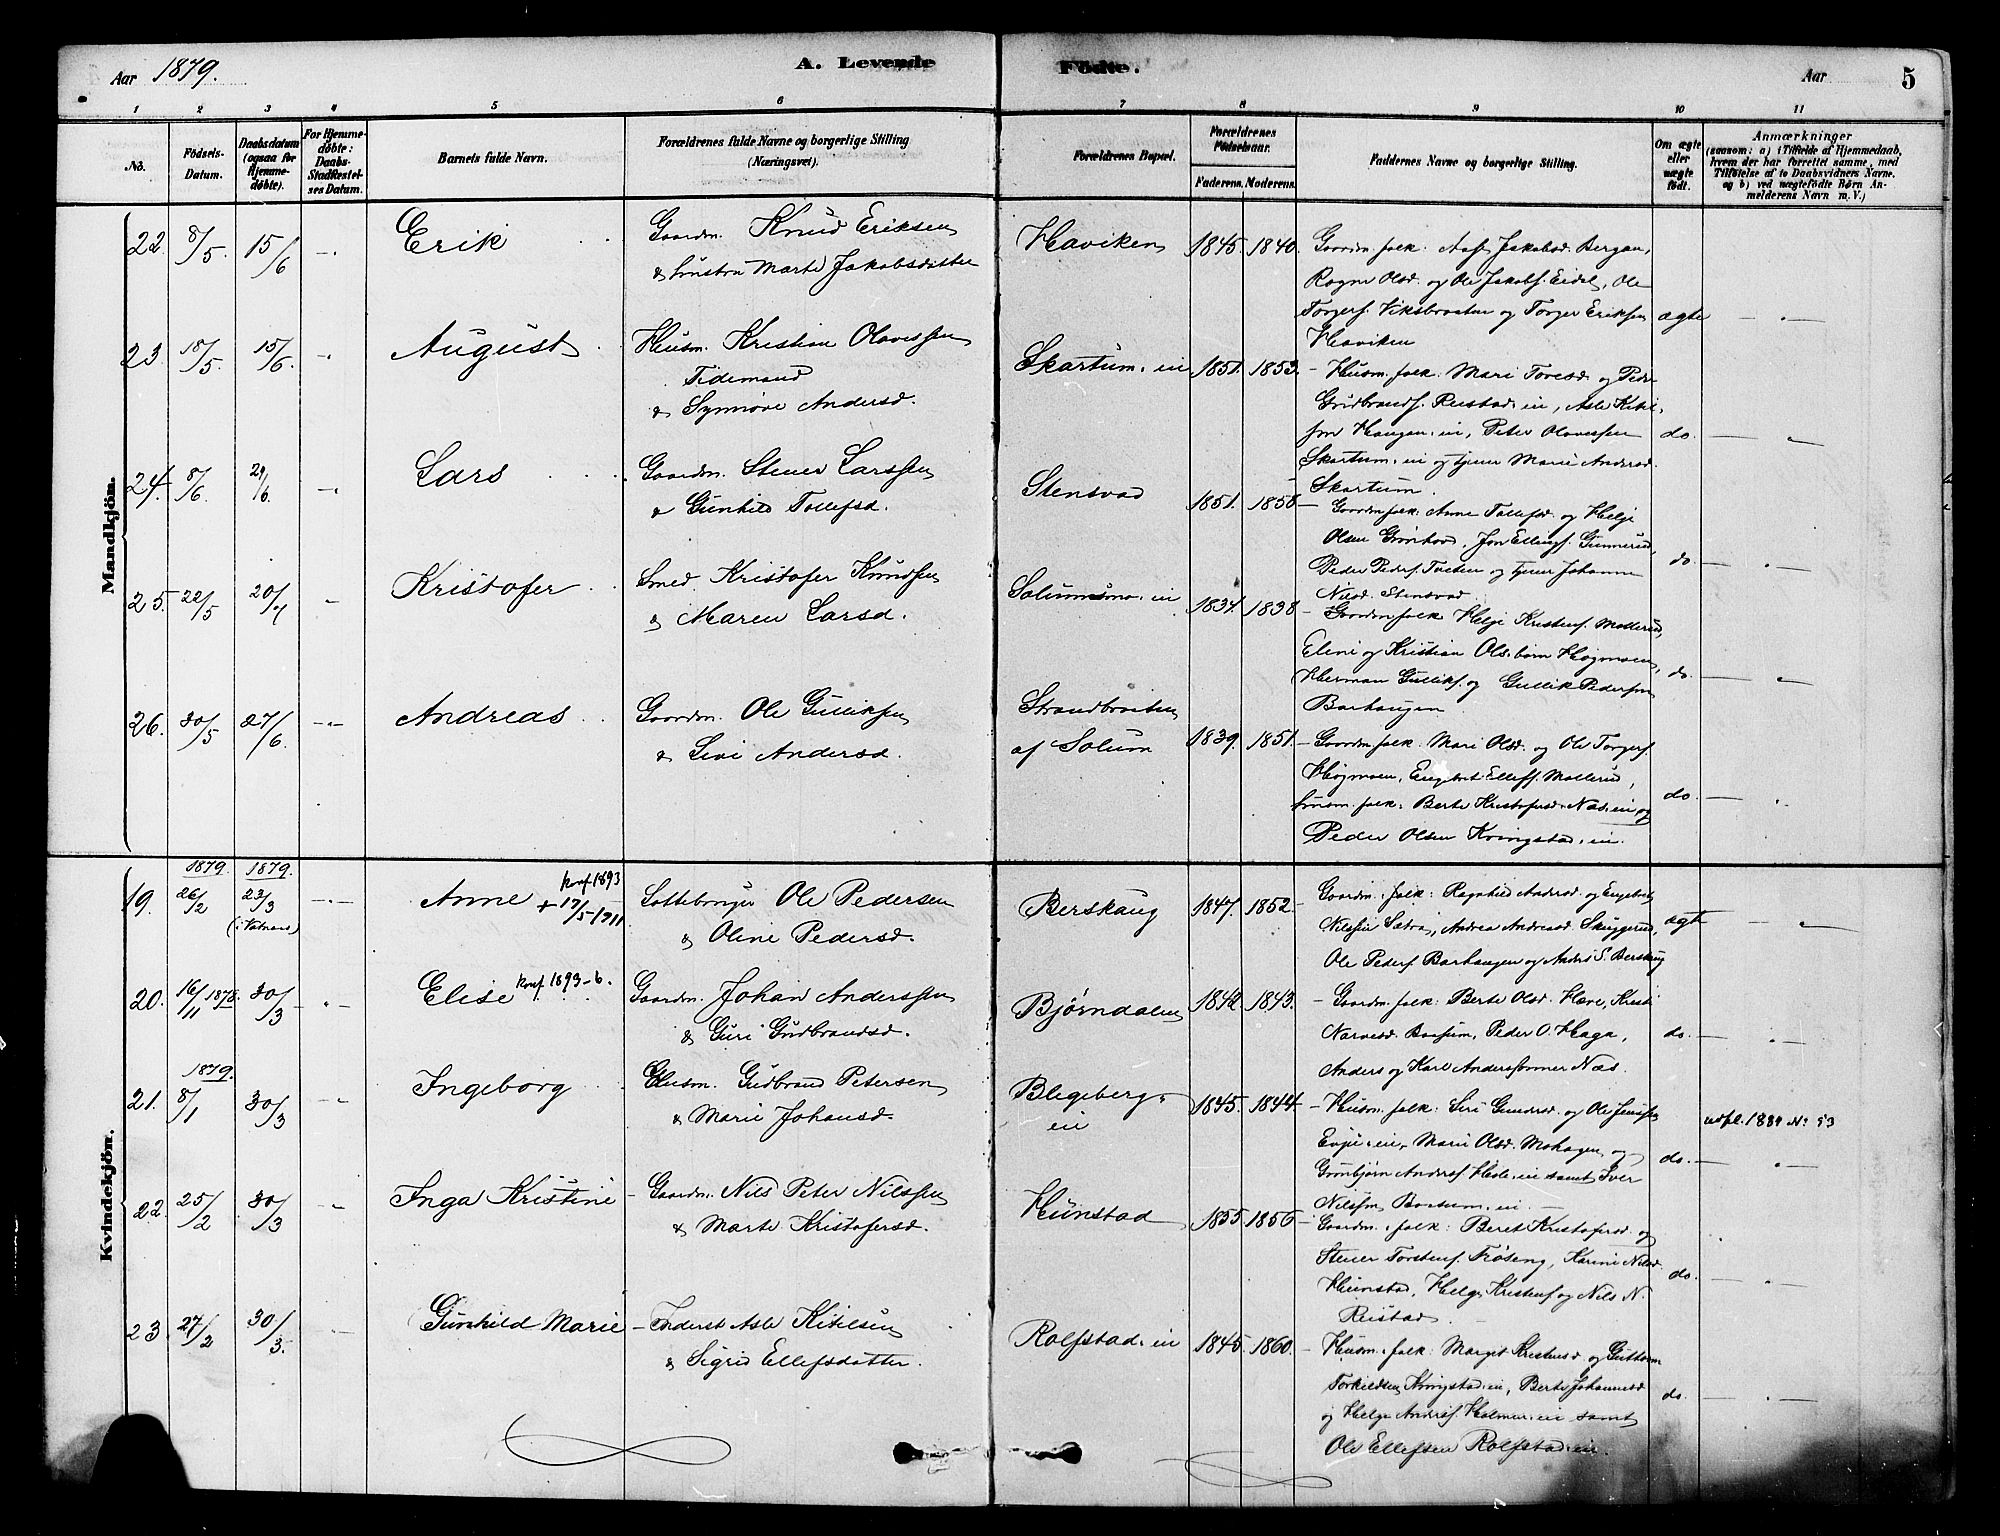 Aar 1879.
A. Levende Födte.
Aar
5
1 2 3 4 5 6 7 8 9 10 11
No.
Födsels-Datum.
Daabsdatum (ogsaa for Hjemme-döbte).
For Hjemme-döbte: Daabs-Stadfæstel-ses Datum.
Barnets fulde Navn.
Forældrenes fulde Navne og borgerlige Stilling (Næringsvei).
Forældrenes Bopæl.
Forældrenes Födselsaar.
Faderens. Moderens.
Faddernes Navne og borgerlige Stilling.
Om ægte eller uægte födt.
Anmærkninger
(saasom: a) i Tilfælde af Hjemmedaab, hvem der har forrettet samme, med Tilföielse af to Daabsvidners Navne. og b) ved uægtefödte Börn An-melderens Navn m. V.)
Mandkjön.
22. 8/5 15/6 Erik
Gaardm. Knud Eriksen
& hustru Marte Jakobsdatter
Haviken 1845. 1840.
Gaardm. folk: Jakobsd. Bergan,
Ragne Olsd. og Ole Jakobs. Eidal, Ole
Torgers. Viksbraaten og Torger Eriksen
Haviken
ægte
23. 18/5. 15/6. August
Husm. Kristian Olavessen
Tidemand
& Synnøve Andersd.
Skartum. ei 1851. 1853.
Husm. folk: Mari Toresd. og Peder
Gudbrands. Reistad. ei, Asle Kitil-
sen Haugan. ei, Peter Olavessen
Skartum. ei og tjener Marie Andersd.
Skartum.
do.
24. 8/6. 29/6. Lars
Gaardm. Stener Larssen
& Gunhild Tollefsd.
Stensvad 1851. 1858
Gaardm. folk: Anne Tollefsd. og Helge
Olsen Grønhovd, Jon Ellings. Gunnerud,
Peder Peders. Tveten og tjener Johanne
Nilsd. Stensvad.
do
25. 22/5 20/7 Kristofer
Smed. Kristofer Knudsen
& Maren Larsd.
Solumsmo. ei 1834. 1838.
Gaardm. folk Helge Kristens. Møllerud,
Eline og Kristian Ols. børn Høgmoen,
Herman Gulliks. og Gullik Pedersen
Barhaugen
do.
26. 30/5 27/6. Andreas
Gaardm. Ole Gulliksen
& Sivi Andersd.
Strandbraaten
af Solum 1839. 1851.
Gaardm. folk: Mari Olsd. og Ole Torgers.
Høgmoen, Engebret Ellefs. Møllerud,
husm. folk: Berte Kristofersd. Næs. ei, og
Peder Olsen Kvingstad. ei.
do.
Kvindekjön.
1879. 1879.
19. 26/2 23/3 (i Vatnaas) Anne konf 1893
+ 17/5 1911
Lottebruger Ole Pedersen
& Oline Pedersd.
Berskaug 1847. 1852.
Gaardm. folk: Ragnhild Andersd. og Engebret
Nilssen Sætra, Andrea Andreasd. Skuggerud,
Ole Peders. Barhaugen og Anders S. Berskaug
ægte
20. 16/11 1878. 30/3 Elise konf 1893-b.
Gaardm. Johan Anderssen
& Guri Gudbrandsd.
Bjørndalen 1842. 1843.
Gaardm. folk: Berte Olsd. Hæve, Kristi
Narvesd. Baasum, Peder O. Haga,
Anders og Karl Anderssønner Næs.
do.
1879.
21. 8/1 30/3 Ingeborg
Husm. Gudbrand Petersen
& Marie Johansd.
Blegeberg.
ei 1845. 1844.
Husm. folk: Siri Gundersd. og Ole Jenssen
Evju. ei, Marie Olsd. Mohagen og
Gunbjørn Anders. Hæle. ei samt Iver
Nilssen Baasum. ei.
do.
udfl. 1889 No 53
22. 25/2 30/3 Inga Kristine
Gaardm. Nils Peter Nilssen
& Marte Kristofersd.
Hunstad 1855. 1856.
Gaardm. folk: Beret Kristofersd. og
Stener Torstens. Frøseng, Karine Nilsd.
Hunstad, Helge Kristens. og Nils N.
Reistad
do.
23. 27/2 30/3. Gunhild Marie
Inderst Asle Kitilsen
& Sigrid Ellefsdatter.
Rolfstad. ei 1845. 1860.
Husm. folk: Margit Kristensd. og Guttorm
Torkildsen Kvingstad. ei, Berte Johannesd.
og Helge Anders. Holmen. ei samt
Ole Ellefsen Rolfstad. ei.
do.